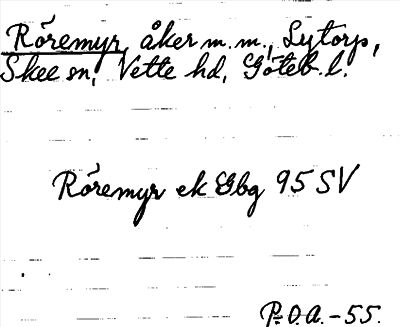 Röremyr, åker m.m., Lytorp,
Skee sn, Vette hd, Göteb. l.
Röremyr ek Gbg 95 SV
P.O.A. - 55.